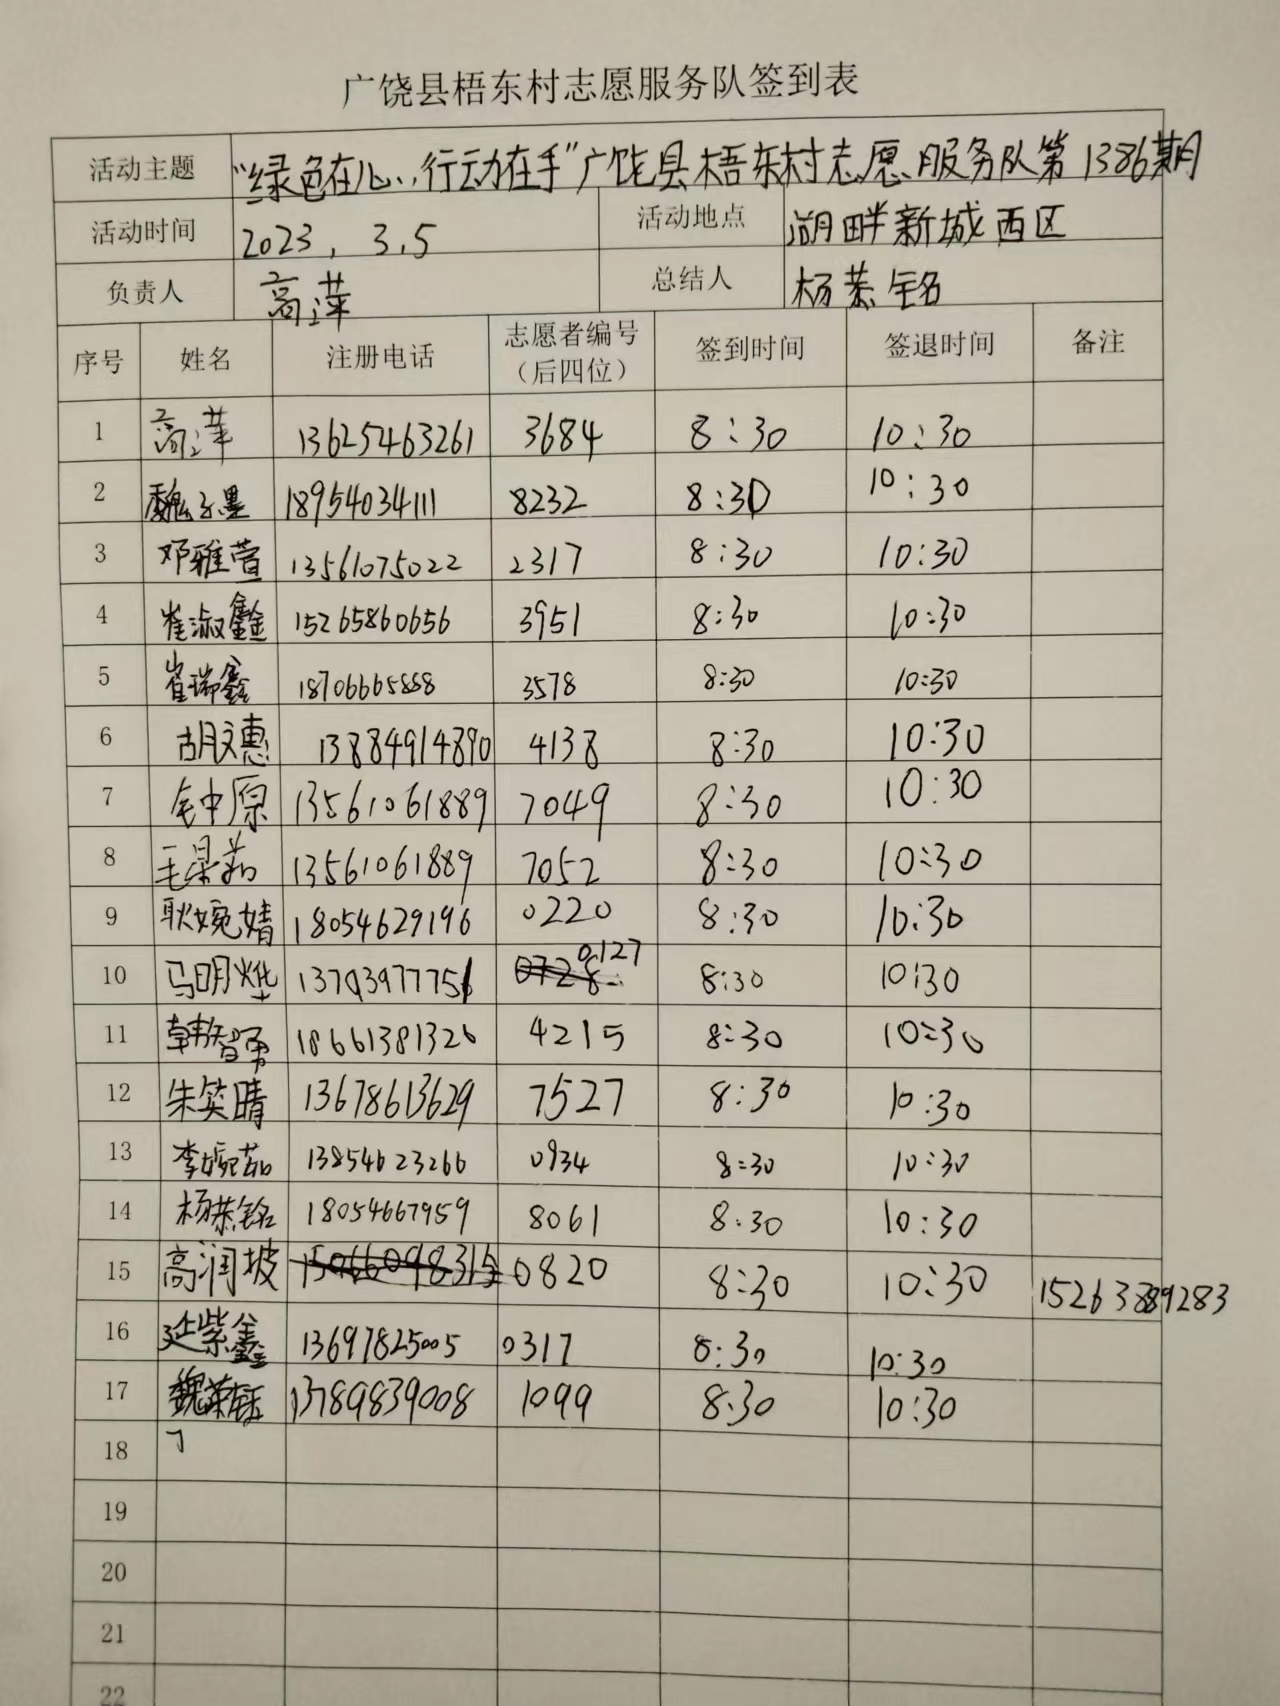 广饶县梧东村志愿服务队签到表
活动主题 "绿色在心,行动在手"广饶县梧东村志愿服务队第1386期
活动时间 2023,3.5 活动地点 湖畔新城西区
负责人 高萍 总结人 杨恭铭
序号 姓名 注册电话 志愿者编号(后四位) 签到时间 签退时间 备注
1 高萍 13625463261 3684 8:30 10:30
2 魏子墨 18954034111 8232 8:30 10:30
3 邓雅萱 13561075022 2317 8:30 10:30
4 崔淑鑫 15265860656 3951 8:30 10:30
5 崔瑞鑫 18706665888 3578 8:30 10:30
6 胡文惠 13884914890 4138 8:30 10:30
7 毛中原 13561061889 7049 8:30 10:30
8 毛景茹 13561061889 7052 8:30 10:30
9 耿婉婧 18054629196 0220 8:30 10:30
10 马明烨 0127 8:30 10:30
11 18661381326 4215 8:30 10:30
12 朱笑晴 13678613629 7527 8:30 10:30
13 李婉茹 13854623266 0934 8:30 10:30
14 杨恭铭 18054667959 8061 8:30 10:30
15 高润坡 0820 8:30 10:30 15263889283
16 延紫鑫 13697825005 0317 8:30 10:30
17 13789839008 1099 8:30 10:30
18
19
20
21
22